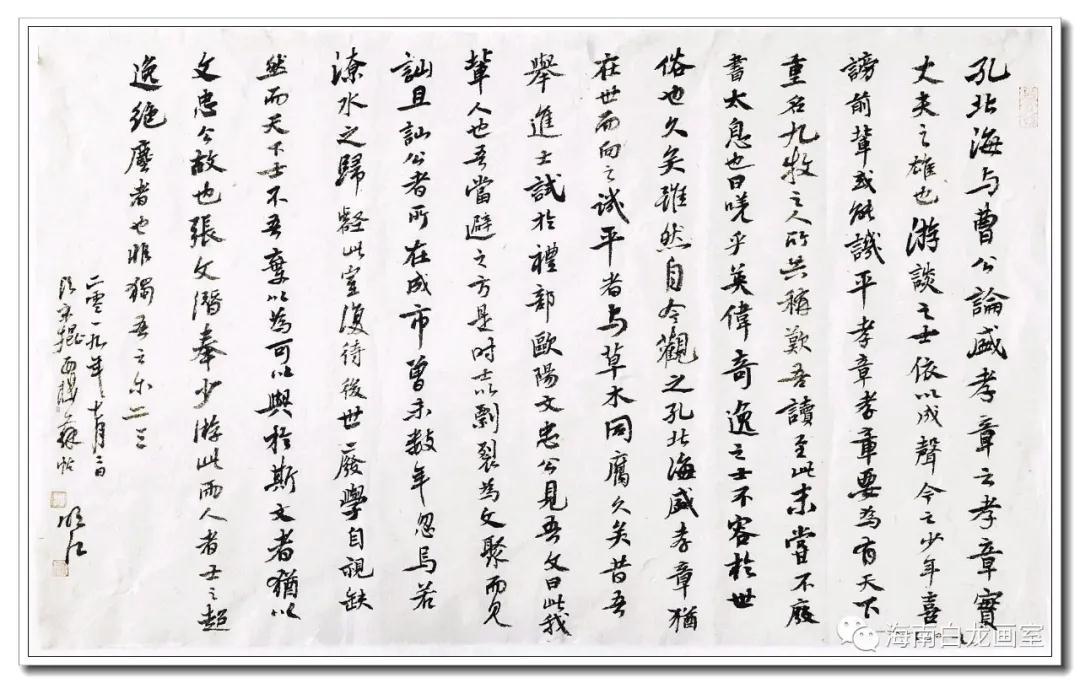 孔北海与曹公論盛孝章云孝章實
丈夫之雄也游談之士依以成聲今之少年喜
謗前輩或能譏平孝章孝章要為有天下
重名九牧之人所共稱歎吾讀至此未嘗不廢
書太息也曰嗟乎英偉奇逸之士不容於世
俗也久矣雖然自今觀之孔北海盛孝章猶
在世而向之譏平者与草木同腐久矣昔吾
舉進士試於禮部歐陽文忠公見吾文曰此我
輩人也吾當避之方是时士以剽裂為文聚而見
訕且訕公者所在成市曾未數年忽焉若
潦水之歸壑此室復待後世廢學自視缺
然而天下士不吾棄以為可以與於斯文者猶以
文忠公故也張文潛秦少游此两人者士之超
逸絕塵者也非獨吾云尔二三
二零一九年十月二日
临宋搨西楼苏帖
海南白龙画室